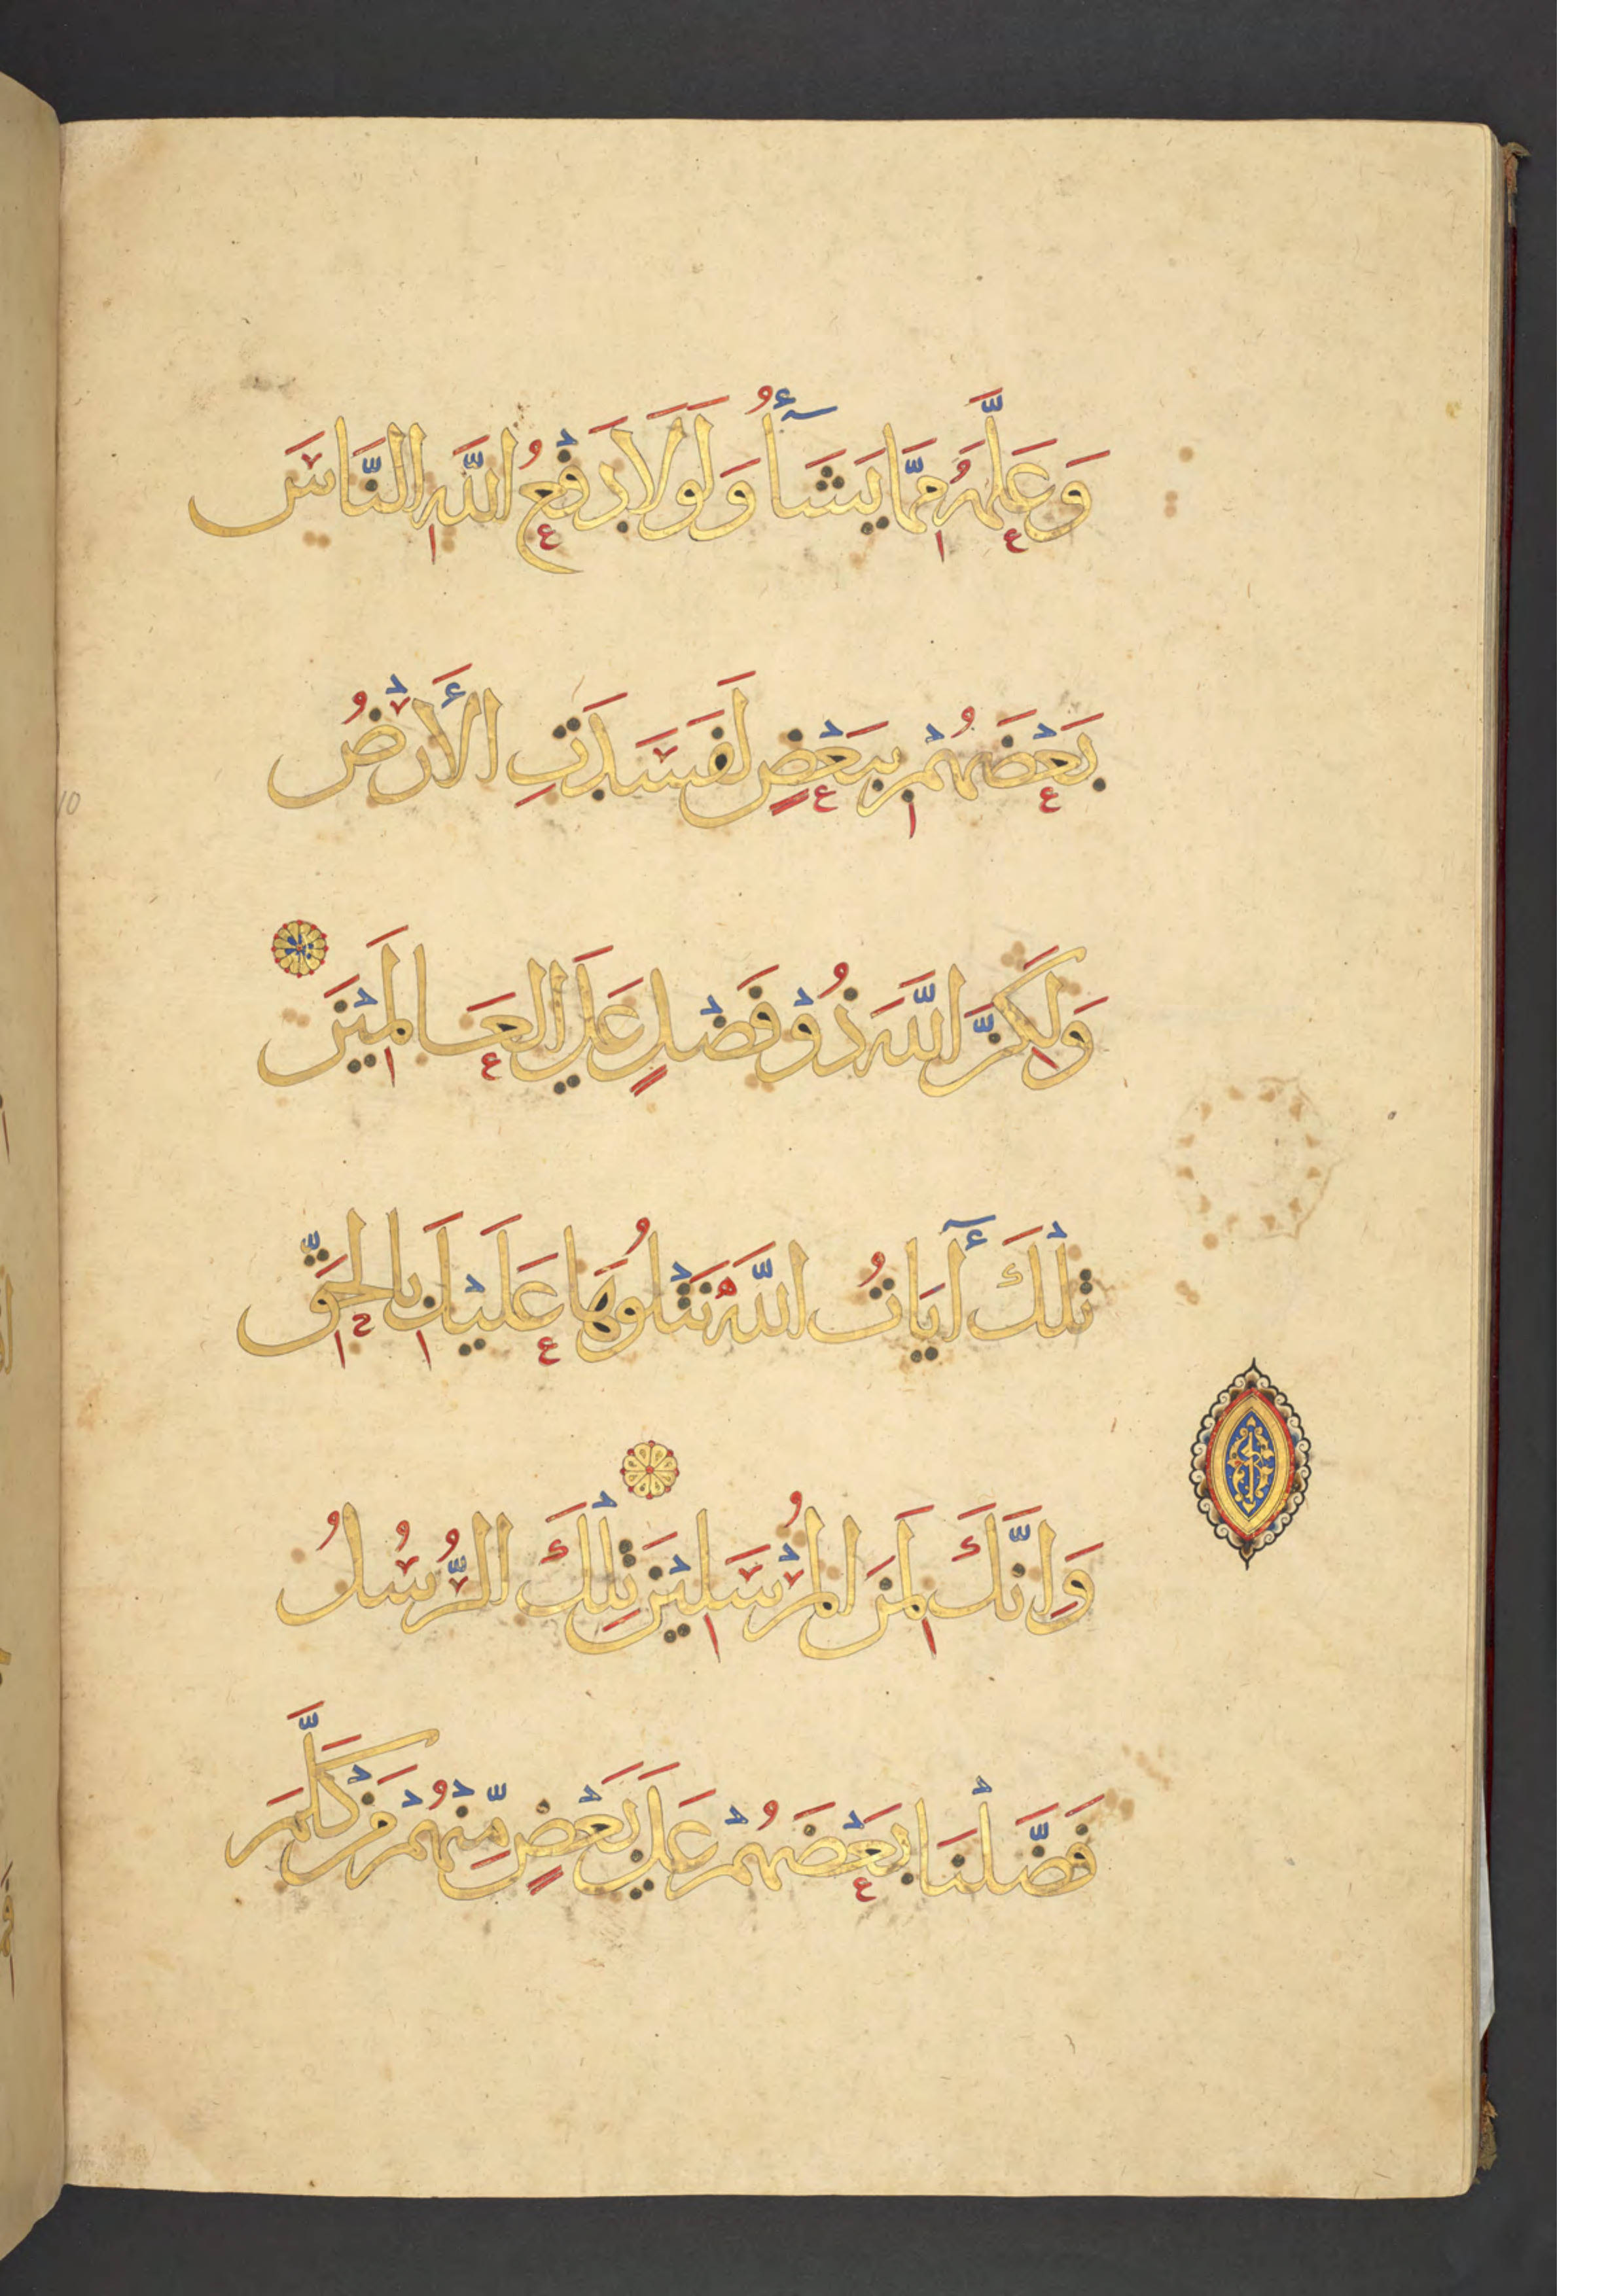 وَعَلَّمَهُ مِمَّا يَشَآأُ وَلَوْلَا دَفْعُ اللَّهِ النَّاسَ
بَعْضَهُمْ بِبَعْضٍ لَفَسَدَتِ الْأَرْضُ
وَلَكِنَّ اللَّهَ ذُوْ فَضْلٍ عَلَى الْعَالَمِيْنَ
تِلْكَ أٓيَاتُ اللَّهِ نَتْلُوهَا عَلَيْكَ بِالْحَقِّ
وَاِنَّكَ لَمِنَ الْمُرْسَلِيْنَ تِلْكَ الرُّسُلُ
فَضَّلْنَا بَعْضَهُمْ عَلَى بَعْضٍ مِّنْهُمْ مَنْ كَلَّمَ